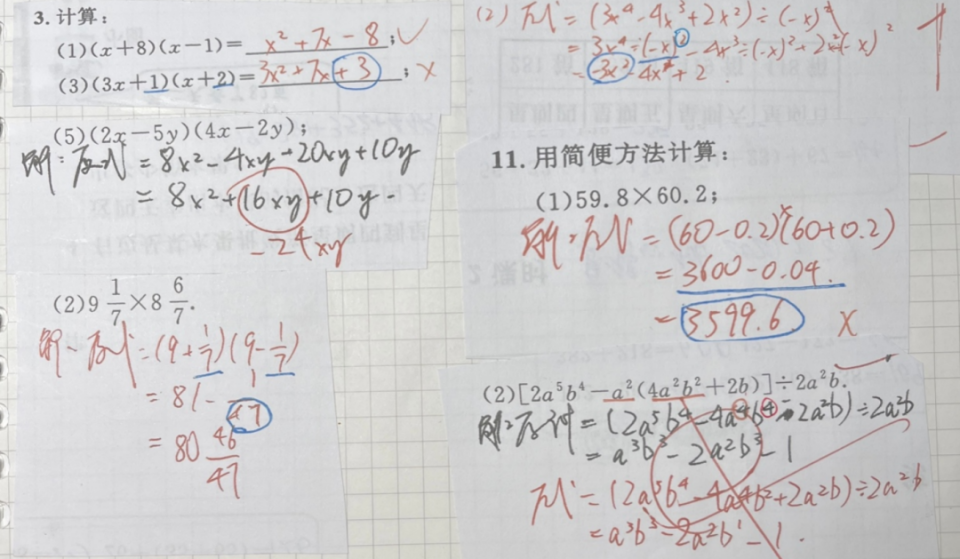 3. 计算:
(1)(x+8)(x-1)= x²+7x-8 ; ✓
(3)(3x+1)(x+2)= 3x²+7x+3 ; ×
(5)(2x-5y)(4x-2y);
解:原式=8x²-4xy-20xy+10y
=8x²+16xy+10y.
-24xy
(2)9 1/7×8 6/7.
解:原式=(9+1/7)(9-1/7)
=81-1/47
=80 46/47
(2)原式=(3x⁴-4x³+2x²)÷(-x)²
=3x⁴÷(-x)²-4x³÷(-x)²+2x²(-x)²
=-3x²-4x⁴+
11. 用简便方法计算:
(1)59.8×60.2;
解:原式=(60-0.2)(60+0.2)
=3600-0.04.
=3599.6 ×
(2)[2a⁵b⁴-a²(4a²b²+2b)]÷2a²b.
解:原式=(2a⁵b⁴-4a⁴b⁴-2a²b)÷2a²b
=a³b³-2a²b³-1
原式=(2a⁵b⁴-4a⁴b²+2a²b)÷2a²b
=a³b³-2a²b¹-1.